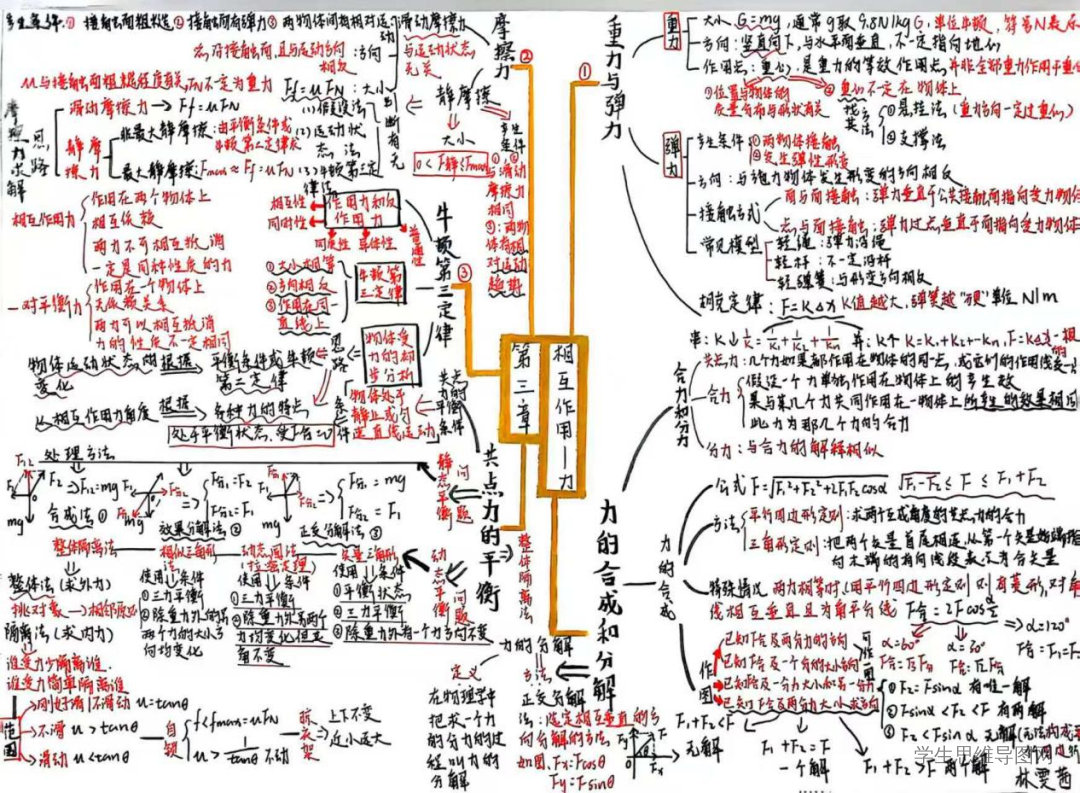 第三章
相互作用—力
①
重力与弹力
重力
大小 G=mg,通常g取9.8N/kg G,单位牛顿,符号N表示
方向:竖直向下,与水平面垂直,不一定指向地心
作用点:重心,是重力的等效作用点,并非全部重力作用于重心
①位置与物体的质量分布与形状有关
②重心不一定在物体上
找其法
①悬挂法(重力方向一定过重心)
②支撑法
弹力
产生条件:①两物体接触
②发生弹性形变
方向:与施力物体发生形变的方向相反
接触方式
面与面接触:弹力垂直于公共接触面指向受力物体
点与面接触:弹力过点垂直于面指向受力物体
常见模型
轻绳:弹力沿绳
轻杆:不一定沿杆
轻弹簧:与形变方向相反
胡克定律:F=KΔx K值越大,弹簧越"硬"单位 N/m
合力和分力
共点力:几个力如果都作用在物体的同一点,或它们的作用线交一点
合力
假设一个力单独作用在物体上的产生效
果与某几个力共同作用在一物体上所产生的效果相同
此力为那几个力的合力
分力:与合力的解释相似
力的合成和分解
力的合成
公式 F=√F₁²+F₂²+2F₁F₂cosα |F₁-F₂|≤F≤F₁+F₂
方法
平行四边形定则:求两个互成角度的共点力的合力
三角形定则:把两个矢量首尾相连,从第一个矢量始端指
向末端的有向线段表示为合矢量
特殊情况 两力相等时(用平行四边形定则)则有菱形,对角
线相互垂直且为角平分线
F合=2Fcosα/2
α=120°
α=60°
作图
已知F合及两分力的方向
已知F合及一个分力的大小方向
F₁+F₂<F
无解
F₁+F₂=F
一个解
F₁+F₂>F 两个解
①F₂=Fsinα 有唯一解
②Fsinα<F₂<F 有两解
③F₂<Fsinα 无解
力的分解
定义
在物理学中
把求一个力
的分力的过
程叫力的
分解
方法
正交分解
法:选定相互垂直的方
向分解的方法
如图,Fx=Fcosθ
Fy=Fsinθ
②
摩擦力
滑动摩擦力
产生条件:①接触面粗糙②接触面有弹力③两物体间有相对运动
方向
与运动状态无关
μ与接触面粗糙程度有关,FN不定为重力
Ff=μFN:大小
静摩擦
大小
0<F静≤Fmax
产生条件
①,②与滑动摩擦力相同
③:两物体有相对运动趋势
判断有无
(1)假设法
(2)运动状态法
(3)牛顿第三定律法
摩擦力求解思路
滑动摩擦力→Ff=μFN
静摩擦力
非最大静摩擦:由平衡条件或牛顿第二定律求
最大静摩擦:Fmax≈Ff=μFN
③
牛顿第三定律
作用力和反作用力
相互性
同时性
同性性
异体性
普遍性
相互作用力
作用在两个物体上
相互依赖
两力不可相互抵消
一定是同种性质的力
一对平衡力
作用在一个物体上
无依赖关系
两力可以相互抵消
力的性质不一定相同
牛顿第三定律
①大小相等
②方向相反
③作用在同一直线上
物体受力的初步分析
思路
物体运动状态的变化
根据
平衡条件或牛顿第二定律
从相互作用力角度
根据
各种力的特点
共点力的平衡
共点力的平衡条件
物体处于静止或匀速直线运动
条件
处于平衡状态,受F合=0
静态平衡问题
处理方法
合成法①
F₁₂=mg
效果分解法②
正交分解法③
动态平衡问题
整体隔离法
整体法(求外力)
挑对象→相邻原则
隔离法(求内力)
谁受力少隔离谁
谁受力简单隔离谁
相似三角形法
使用条件
①三力平衡
②除重力外的另两个力的大小方向均变化
动态圆法
使用条件
①三力平衡
②除重力外另两个力均变化但夹角不变
矢量三角形
使用条件
①平衡状态
②三力平衡
③除重力外有一个力方向不变
范围
刚好滑/不滑动 μ=tanθ
不滑 μ>tanθ
滑动 μ<tanθ
自锁
f<fmax=μFN
μ>1/tanθ 不动
晾衣架
上下不变
近小远大
学生思维导图网
林雯茜